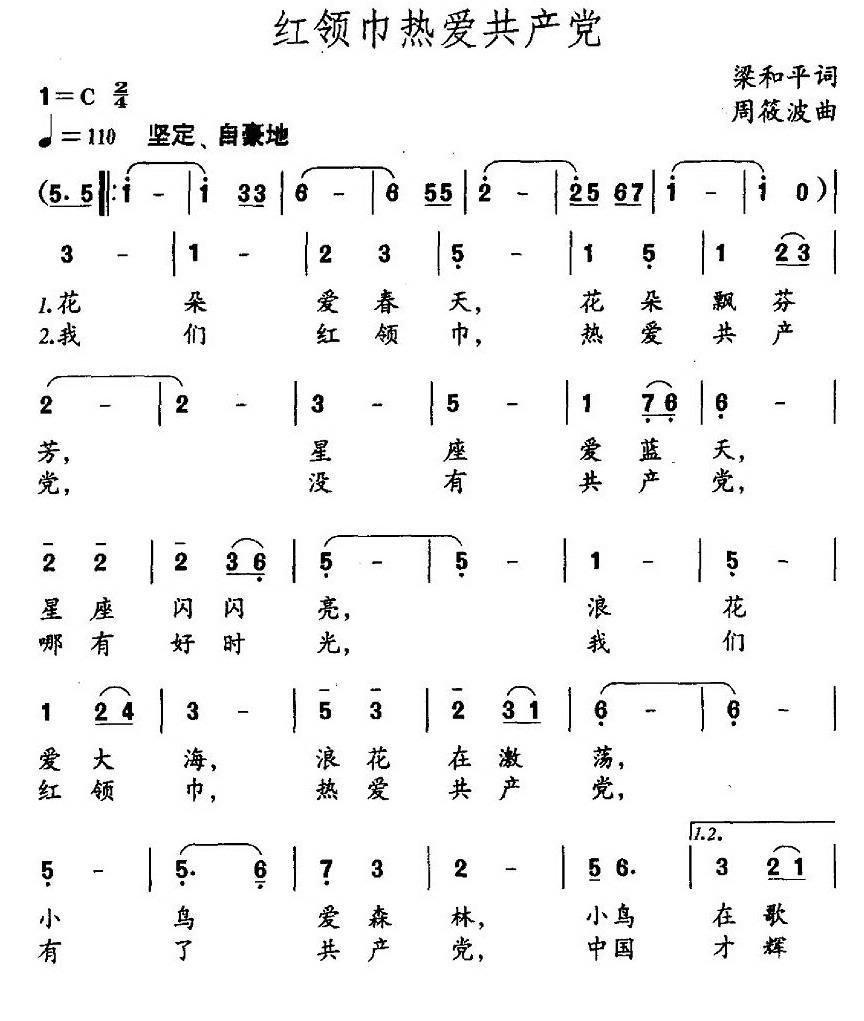 红领巾热爱共产党
梁和平词
1=C 2/4
周筱波曲
♩=110 坚定、自豪地
(5. 5 ‖: 1 - | 1 33 | 6 - | 6 55 | 2 - | 25 67 | 1 - | 1 0 ) |
3 - | 1 - | 2 3 | 5 - | 1 5 | 1 23 |
1.花 朵 爱 春 天, 花 朵 飘 芬
2.我 们 红 领 巾, 热 爱 共 产
2 - | 2 - | 3 - | 5 - | 1 76 | 6 - |
芳, 星 座 爱 蓝 天,
党, 没 有 共 产 党,
2 2 | 2 36 | 5 - | 5 - | 1 - | 5 - |
星 座 闪 闪 亮, 浪 花
哪 有 好 时 光, 我 们
1 24 | 3 - | 5 3 | 2 31 | 6 - | 6 - |
爱 大 海, 浪 花 在 激 荡,
红 领 巾, 热 爱 共 产 党,
1.2.
5 - | 5. 6 | 7 3 | 2 - | 5 6. | 3 21 |
小 鸟 爱 森 林, 小 鸟 在 歌
有 了 共 产 党, 中 国 才 辉